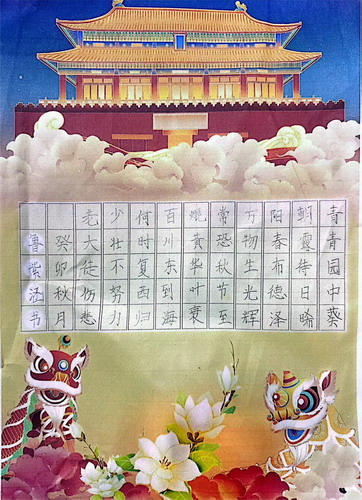 青青园中葵
朝露待日晞
阳春布德泽
万物生光辉
常恐秋节至
焜黄华叶衰
百川东到海
何时复西归
少壮不努力
老大徒伤悲
癸卯秋月
鲁紫泾书